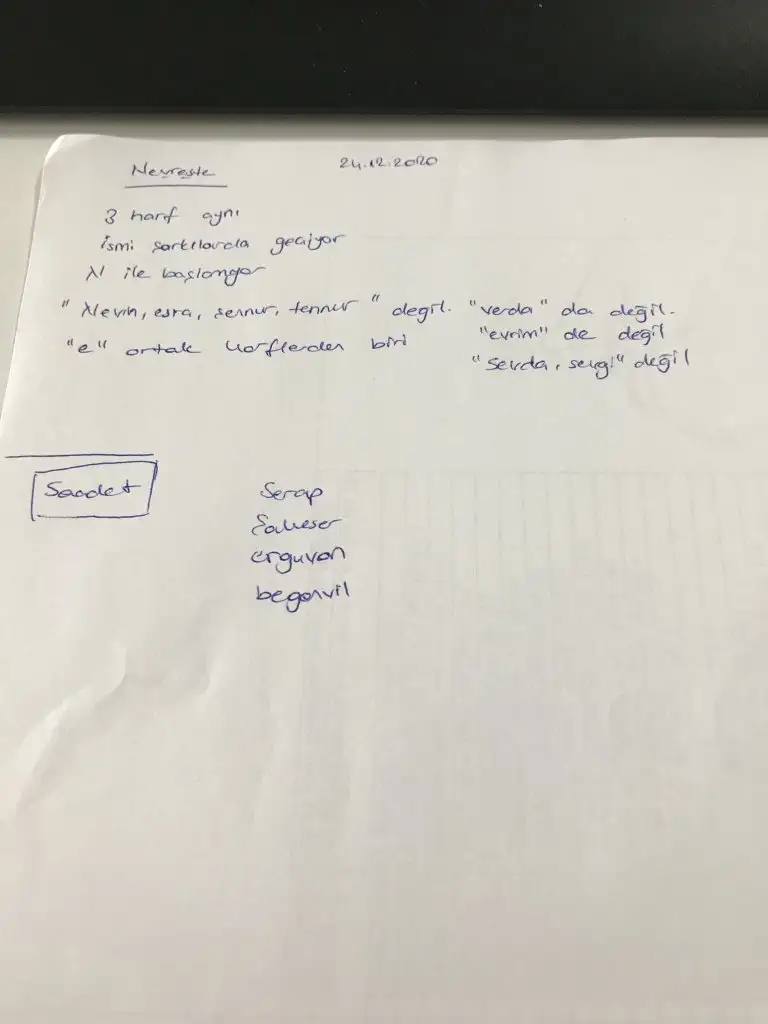 Nevreste
24.12.2020
3 harf aynı
İsmi şarkılarda geçiyor
N ile başlamıyor
"Nevin, esra, sennur, tennur" değil. "verda" da değil.
"e" ortak harflerden biri "evrim" de değil
"Sevda, sevgi" değil
Saadet
Serap
Şaheser
erguvan
begonvil